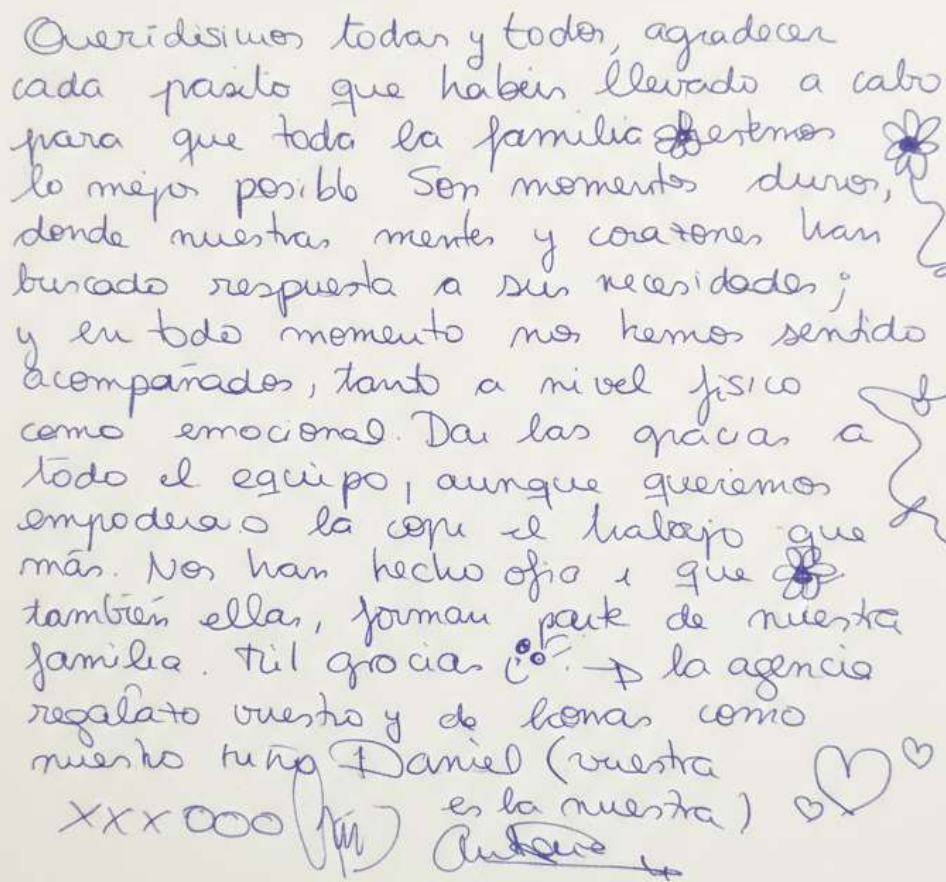 Queridísimos todas y todos, agradecer
cada pasito que habéis llevado a cabo
para que toda la familia estemos
lo mejor posible Son momentos duros,
donde nuestras mentes y corazones han
buscado respuesta a sus necesidades;
y en todo momento nos hemos sentido
acompañados, tanto a nivel físico
como emocional. Dar las gracias a
todo el equipo, aunque queremos
la el que
más. Nos han hecho que
también ellas, forman parte de nuestra
familia. Mil gracias la agencia
vuestro y de como
nuestro Daniel (vuestra
es la nuestra)
XXX OOO